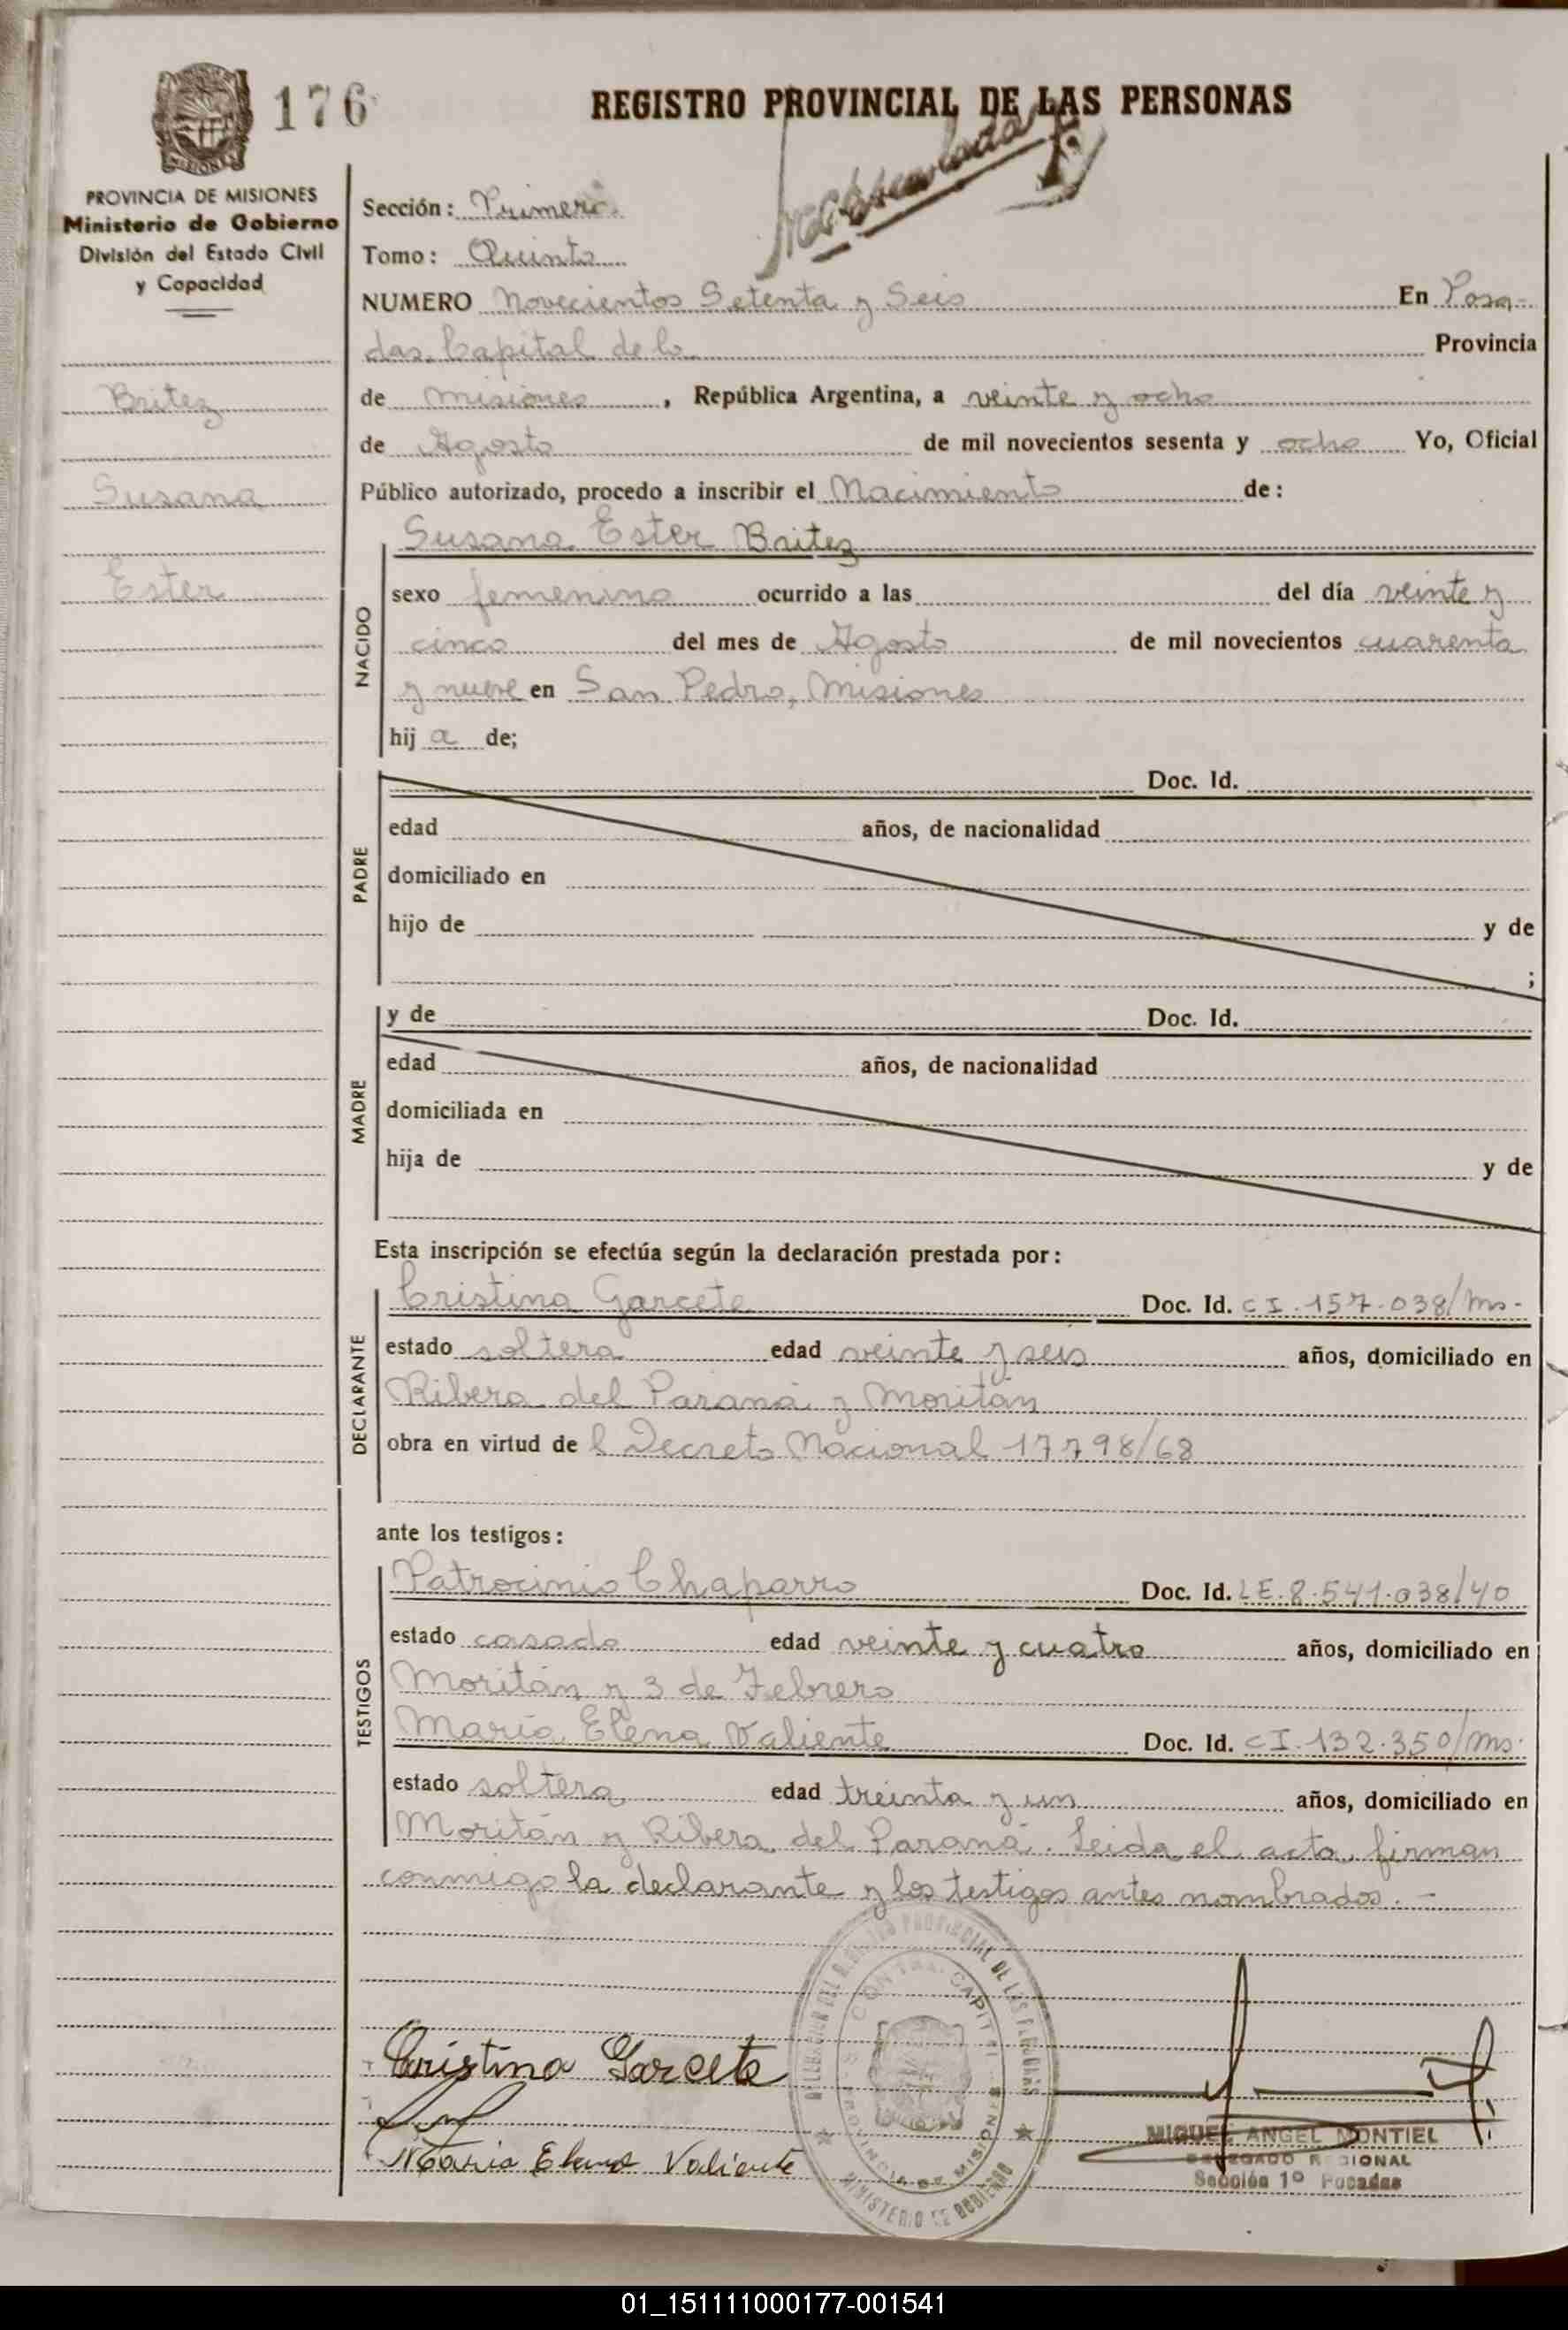 176
REGISTRO PROVINCIAL DE LAS PERSONAS
MISIONES
PROVINCIA DE MISIONES
Ministerio de Gobierno
División del Estado Civil
y Capacidad
Britez
Susana
Ester
Sección: Primera
Tomo: Quinto
NUMERO Novecientos Setenta y Seis En Posa-
das, Capital de la Provincia
de Misiones, República Argentina, a veinte y ocho
de Agosto de mil novecientos sesenta y ocho Yo, Oficial
Público autorizado, procedo a inscribir el Nacimiento de:
Susana Ester Britez
NACIDO
sexo femenino ocurrido a las del día veinte y
cinco del mes de Agosto de mil novecientos cuarenta
y nueve en San Pedro, Misiones
hij a de;
PADRE
Doc. Id.
edad años, de nacionalidad
domiciliado en
hijo de y de
;
MADRE
y de Doc. Id.
edad años, de nacionalidad
domiciliada en
hija de y de
Esta inscripción se efectúa según la declaración prestada por:
DECLARANTE
Cristina Garcete Doc. Id. CI. 157.038/Ms-
estado soltera edad veinte y seis años, domiciliado en
Ribera del Paraná y Moritán
obra en virtud de l Decreto Nacional 17798/68
ante los testigos:
TESTIGOS
Patrocinio Chaparro Doc. Id. LE.8.541.038/40
estado casado edad veinte y cuatro años, domiciliado en
Moritán y 3 de Febrero
María Elena Valiente Doc. Id. CI.132.350/Ms.
estado soltera edad treinta y un años, domiciliado en
Moritán y Ribera del Paraná. Leida el acta, firman
conmigo la declarante y los testigos antes nombrados. -
Cristina Garcete
Maria Elena Valiente
DELEGACION DEL REGISTRO PROVINCIAL DE LAS PERSONAS
CAPITAL
PROVINCIA DE MISIONES
MINISTERIO DE GOBIERNO
MIGUEL ANGEL MONTIEL
DELEGADO REGIONAL
Sección 1º Posadas
01_151111000177-001541